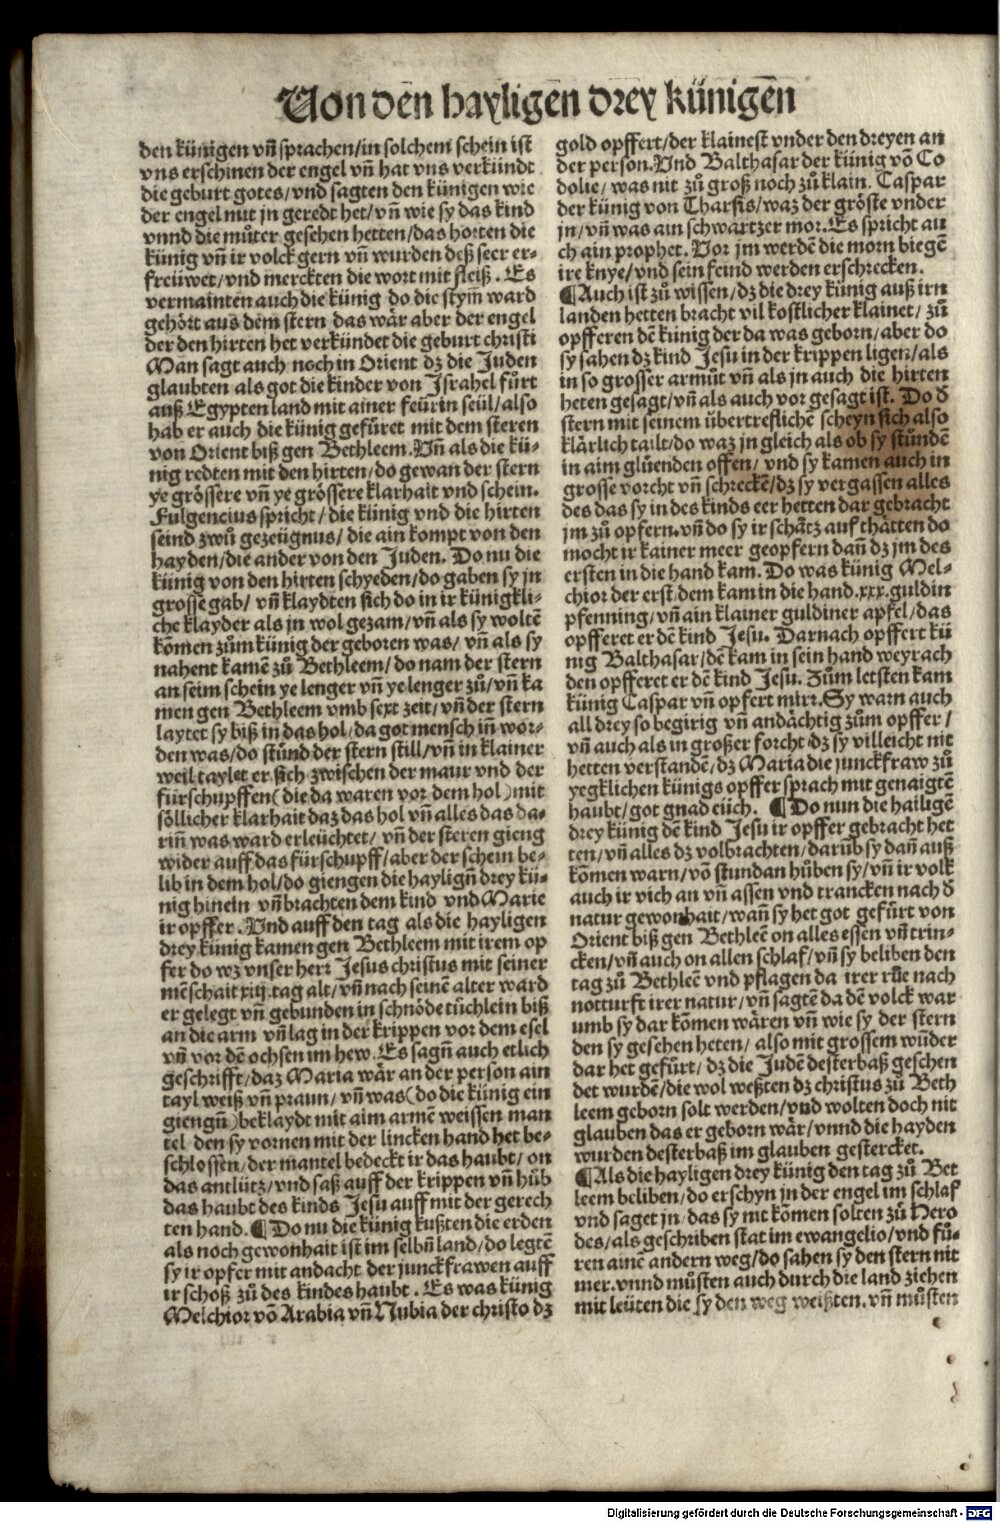 Von den hayligen drey künigen
den künigen vñ sprachen/in solchem schein ist
vns erschinen der engel vñ hat vns verkündt
die geburt gotes/vnd sagten den künigen wie
der engel mit jn geredt het/vñ wie sy das kind
vnnd die můter gesehen hetten/das horten die
künig vñ ir volck gern vñ wurden deß seer er-
freüwet/vnd merckten die wort mit fleiß. Es
vermainten auch die künig do die stym̄ ward
gehört aus dem stern das wär aber der engel
der den hirten het verkündet die geburt christi
Man sagt auch noch in Orient dz die Juden
glaubten als got die kinder von Jsrahel fůrt
auß Egypten land mit ainer feürin seül/also
hab er auch die künig gefüret mit dem steren
von Orient biß gen Bethleem. Vñ als die kü-
nig redten mit den hirten/do gewan der stern
ye grössere vñ ye grössere klarhait vnd schein.
Fulgencius spricht/die künig vnd die hirten
seind zwů gezeügnus/die ain kompt von den
hayden/die ander von den Juden. Do nu die
künig von den hirten schyeden/do gaben sy jn
grosse gab/vñ klaydten sich do in ir künigkli-
che klayder als jn wol gezam/vñ als sy woltē
kōmen zům künig der geboren was/vñ als sy
nahent kamē zů Bethleem/do nam der stern
an seim schein ye lenger vñ ye lenger zů/vñ ka
men gen Bethleem vmb sext zeit/vñ der stern
laytet sy biß in das hol/da got mensch iñ wor-
den was/do stůnd der stern still/vñ in klainer
weil taylet er sich zwischen der maur vnd der
fürschupffen(die da waren vor dem hol)mit
söllicher klarhait daz das hol vñ alles das da-
riñ was ward erleüchtet/vñ der steren gieng
wider auff das fürschupff/aber der schein be-
lib in dem hol/do giengen die hayligñ drey kü-
nig hinein vñ brachten dem kind vnd Marie
ir opffer. Vnd auff den tag als die hayligen
drey künig kamen gen Bethleem mit irem op
fer do wz vnser herr Jesus christus mit seiner
mēschait xiij.tag alt/vñ nach seinē alter ward
er gelegt vñ gebunden in schnöde tüchlein biß
an die arm vñ lag in der krippen vor dem esel
vñ vor dē ochsen im hew. Es sagñ auch etlich
geschrifft/daz Maria wär an der person ain
tayl weiß vñ praun/vñ was(do die künig ein
giengñ)beklaydt mit aim armē weissen man
tel den sy vornen mit der lincken hand het be-
schlossen/der mantel bedeckt ir das haubt/on
das antlütz/vnd saß auff der krippen vñ hůb
das haubt des kinds Jesu auff mit der gerech
ten hand. ¶Do nu die künig kußten die erden
als noch gewonhait ist im selbñ land/do legtē
sy ir opfer mit andacht der junckfrawen auff
ir schoß zů des kindes haubt. Es was künig
Melchior vō Arabia vñ Nubia der christo dz
gold opffert/der klainest vnder den dreyen an
der person. Vnd Balthasar der künig vō Co
dolie/was nit zů groß noch zů klain. Caspar
der künig von Tharsis/waz der gröste vnder
jn/vñ was ain schwartzer mor. Es spricht au
ch ain prophet. Vor jm werdē die morn biegē
ire knye/vnd sein feind werden erschrecken.
¶Auch ist zů wissen/dz die drey künig auß irn
landen hetten bracht vil kostlicher klainet/zů
opfferen dē künig der da was geborn/aber do
sy sahen dz kind Jesu in der krippen ligen/als
in so grosser armůt vñ als jn auch die hirten
heten gesagt/vñ als auch vor gesagt ist. Do d̄
stern mit seinem übertreflichē scheyn sich also
klärlich tailt/do waz jn gleich als ob sy stůndē
in aim glüenden offen/vnd sy kamen auch in
grosse vorcht vñ schreckē/dz sy vergassen alles
des das sy in des kinds eer hetten dar gebracht
jm zů opfern.vñ do sy ir schätz auf thätten do
mocht ir kainer meer geopfern dañ dz jm des
ersten in die hand kam. Do was künig Mel-
chior der erst.dem kam in die hand.xxx.guldin
pfenning/vñ ain klainer guldiner apfel/das
opfferet er dē kind Jesu. Darnach opffert kü
nig Balthasar/dē kam in sein hand weyrach
den opfferet er dē kind Jesu. Zům letsten kam
künig Caspar vñ opfert mirr. Sy warn auch
all drey so begirig vñ andächtig zům opffer/
vñ auch als in großer forcht dz sy villeicht nit
hetten verstandē/dz Maria die junckfraw zů
yegklichen künigs opffer sprach mit genaigtē
haubt/got gnad eüch. ¶Do nun die hailigē
drey künig dē kind Jesu ir opffer gebracht het
ten/vñ alles dz volbrachten/darüb sy dañ auß
kōmen warn/vō stundan hůben sy/vñ ir volk
auch ir vich an vñ assen vnd trancken nach d̄
natur gewonhait/wañ sy het got gefürt von
Orient biß gen Bethleē on alles essen vñ trin-
cken/vñ auch on allen schlaf/vñ sy beliben den
tag zů Bethleē vnd pflagen da irer růe nach
notturft irer natur/vñ sagtē da dē volck war
umb sy dar kōmen wären vñ wie sy der stern
den sy gesehen heten/also mit grossem wūder
dar het gefürt/dz die Judē desterbaß geschen
det wurdē/die wol weßten dz christus zů Beth
leem geborn solt werden/vnd wolten doch nit
glauben das er geborn wär/vnnd die hayden
wurden desterbaß im glauben gestercket.
¶Als die hayligen drey künig den tag zů Bet
leem beliben/do erschyn jn der engel im schlaf
vnd saget jn das sy nit kōmen solten zů Hero
des/als geschriben stat im ewangelio/vnd fü-
ren ainē andern weg/do sahen sy den stern nit
mer.vnnd můsten auch durch die land ziehen
mit leüten die sy den weg weißten.vñ můsten
Digitalisierung gefördert durch die Deutsche Forschungsgemeinschaft - DFG